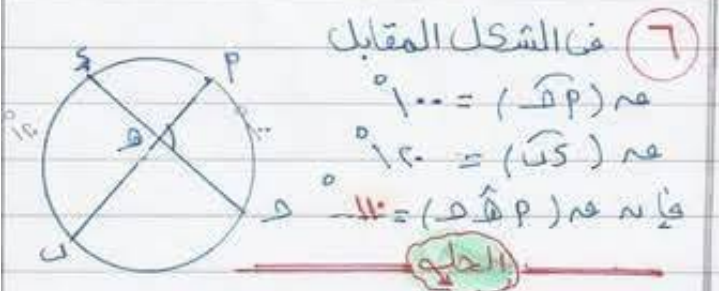 ٦ فى الشكل المقابل
ق (أحـ) = ١٠٠°
ق (ءب) = ١٢٠°
فإن ق (أ هـ حـ) = ١١٠°
الحل
ء
أ
هـ
حـ
ب
١٠٠°
١٢٠°